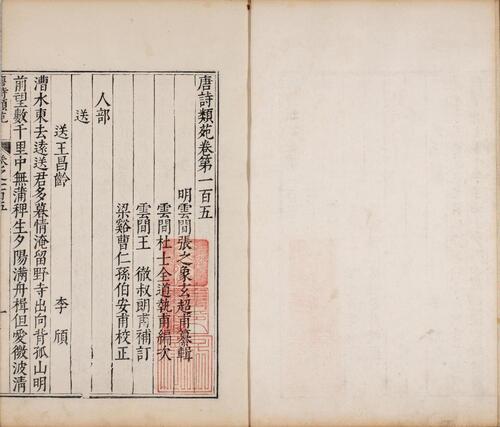 唐詩類苑卷第一百五
明雲間張之象玄超甫纂輯
雲間杜士全道執甫編次
雲間王徹叔朗甫補訂
梁谿曹仁孫伯安甫校正
人部
送
送王昌齡 李頎
漕水東去遠送君多暮情淹留野寺出向背孤山明
前望數千里中無蒲稗生夕陽滿舟楫但愛微波清